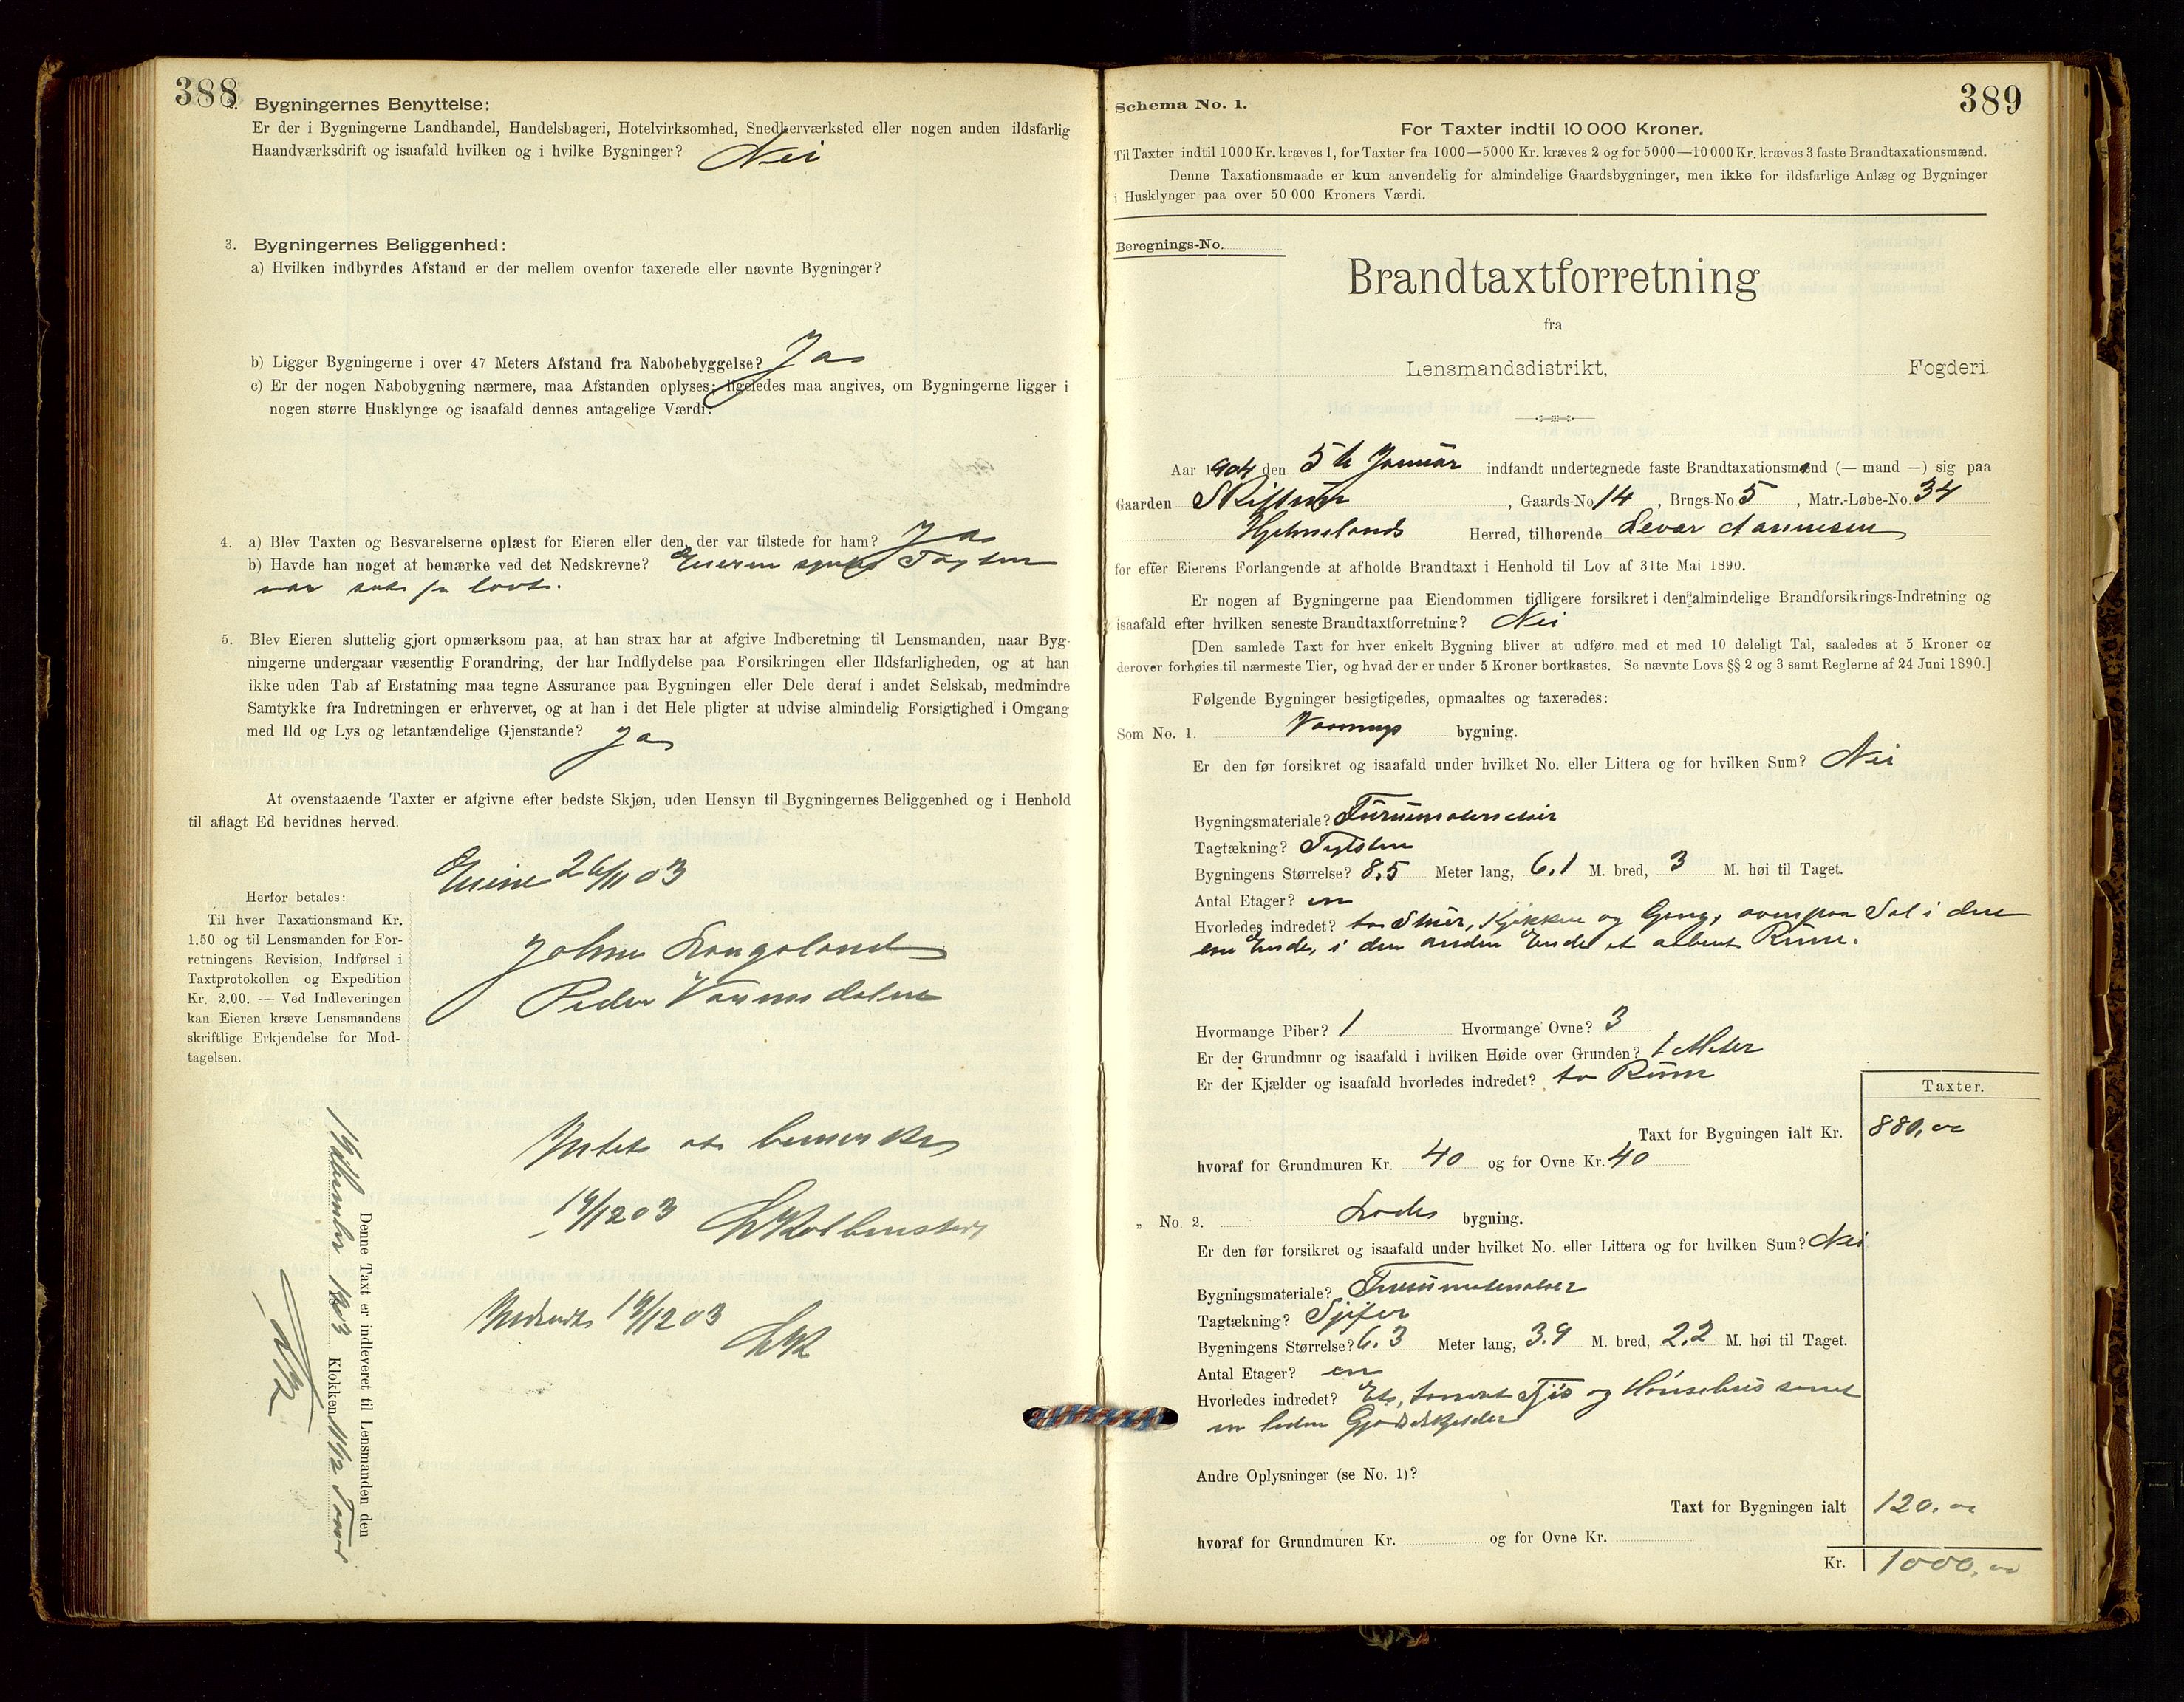 388
2. Bygningernes Benyttelse:
Er der i Bygningerne Landhandel, Handelsbageri, Hotelvirksomhed, Snedkerværksted eller nogen anden ildsfarlig
Haandværksdrift og isaafald hvilken og i hvilke Bygninger? Nei
3. Bygningernes Beliggenhed:
a) Hvilken indbyrdes Afstand er der mellem ovenfor taxerede eller nævnte Bygninger?
b) Ligger Bygningerne i over 47 Meters Afstand fra Nabobebyggelse? Ja
c) Er der nogen Nabobygning nærmere, maa Afstanden oplyses; ligeledes maa angives, om Bygningerne ligger i
nogen større Husklynge og isaafald dennes antagelige Værdi.
4. a) Blev Taxten og Besvarelserne oplæst for Eieren eller den, der var tilstede for ham? Ja
b) Havde han noget at bemærke ved det Nedskrevne? Eieren synes Taxten
var sat for lavt.
5. Blev Eieren sluttelig gjort opmærksom paa, at han strax har at afgive Indberetning til Lensmanden, naar Byg-
ningerne undergaar væsentlig Forandring, der har Indflydelse paa Forsikringen eller Ildsfarligheden, og at han
ikke uden Tab af Erstatning maa tegne Assurance paa Bygningen eller Dele deraf i andet Selskab, medmindre
Samtykke fra Indretningen er erhvervet, og at han i det Hele pligter at udvise almindelig Forsigtighed i Omgang
med Ild og Lys og letantændelige Gjenstande? Ja
At ovenstaaende Taxter er afgivne efter bedste Skjøn, uden Hensyn til Bygningernes Beliggenhed og i Henhold
til aflagt Ed bevidnes herved.
26/11 03
Herfor betales:
Til hver Taxationsmand Kr.
1.50 og til Lensmanden for For-
retningens Revision, Indførsel i
Taxtprotokollen og Expedition
Kr. 2.00. — Ved Indleveringen
kan Eieren kræve Lensmandens
skriftlige Erkjendelse for Mod-
tagelsen.
Johne Langeland
Peder
Intet at bemerke
19/12 03
19/12 03
Denne Taxt er indleveret til Lensmanden den
1903 Klokken 11 1/2
Schema No. 1.
389
For Taxter indtil 10 000 Kroner.
Til Taxter indtil 1000 Kr. kræves 1, for Taxter fra 1000—5000 Kr. kræves 2 og for 5000—10 000 Kr. kræves 3 faste Brandtaxationsmænd.
Denne Taxationsmaade er kun anvendelig for almindelige Gaardsbygninger, men ikke for ildsfarlige Anlæg og Bygninger
i Husklynger paa over 50 000 Kroners Værdi.
Beregnings-No.
Brandtaxtforretning
fra
Lensmandsdistrikt, Fogderi.
Aar 1904 den 5te Januar indfandt undertegnede faste Brandtaxationsmænd (— mand —) sig paa
Gaarden Skiftun, Gaards-No 14, Brugs-No 5, Matr.-Løbe-No. 34
Hjelmelands Herred, tilhørende
for efter Eierens Forlangende at afholde Brandtaxt i Henhold til Lov af 31te Mai 1890.
Er nogen af Bygningerne paa Eiendommen tidligere forsikret i den almindelige Brandforsikrings-Indretning og
isaafald efter hvilken seneste Brandtaxtforretning? Nei
[Den samlede Taxt for hver enkelt Bygning bliver at udføre med et med 10 deleligt Tal, saaledes at 5 Kroner og
derover forhøies til nærmeste Tier, og hvad der er under 5 Kroner bortkastes. Se nævnte Lovs §§ 2 og 3 samt Reglerne af 24 Juni 1890.]
Følgende Bygninger besigtigedes, opmaaltes og taxeredes:
Som No. 1. Vaanings bygning.
Er den før forsikret og isaafald under hvilket No. eller Littera og for hvilken Sum? Nei
Bygningsmateriale? Furumaterialier
Tagtækning? Teglsten
Bygningens Størrelse? 8,5 Meter lang, 6,1 M. bred, 3 M. høi til Taget.
Antal Etager? en
Hvorledes indredet? to Stuer, Kjøkken og Gang, ovenpaa Sal i den
ene Ende, i den anden Ende et aabent Rum.
Hvormange Piber? 1 Hvormange Ovne? 3
Er der Grundmur og isaafald i hvilken Høide over Grunden? 1 Meter
Er der Kjælder og isaafald hvorledes indredet? to Rum
Taxter.
Taxt for Bygningen ialt Kr. 880,00
hvoraf for Grundmuren Kr. 40 og for Ovne Kr. 40
„ No. 2. Lade bygning.
Er den før forsikret og isaafald under hvilket No. eller Littera og for hvilken Sum? Nei
Bygningsmateriale? Furumaterialier
Tagtækning? Sjifer
Bygningens Størrelse? 6,3 Meter lang, 3,9 M. bred, 2,2 M. høi til Taget.
Antal Etager? en
Hvorledes indredet? og Hønsehus samt
en liden Gjødselkjelder
Andre Oplysninger (se No. 1)?
Taxt for Bygningen ialt 120,00
hvoraf for Grundmuren Kr. og for Ovne Kr.
Kr. 1000,00